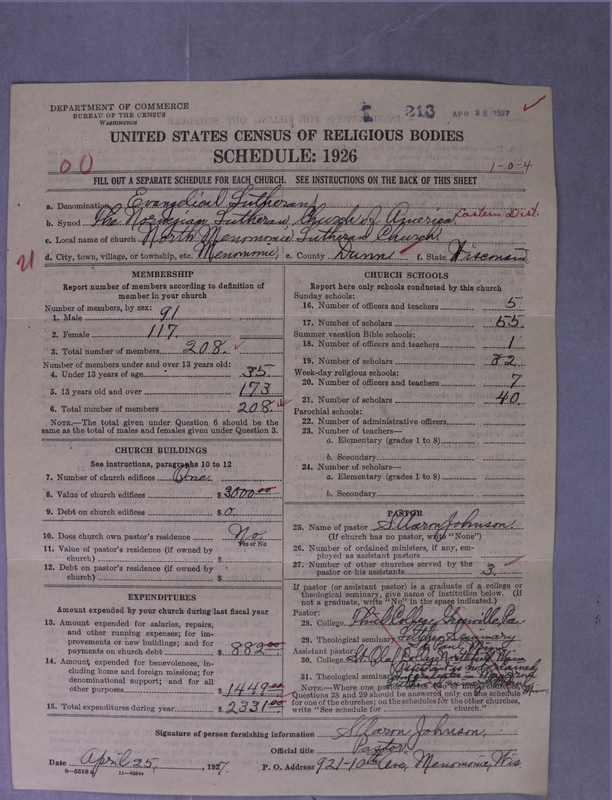 DEPARTMENT OF COMMERCE
BUREAU OF THE CENSUS
WASHINGTON
213 APR 28 1927
UNITED STATES CENSUS OF RELIGIOUS BODIES
SCHEDULE: 1926
00
1-0-4
FILL OUT A SEPARATE SCHEDULE FOR EACH CHURCH. SEE INSTRUCTIONS ON THE BACK OF THIS SHEET
a. Denomination Evangelical Lutheran
b. Synod The Norwegian Lutheran Church of America Eastern Dist.
c. Local name of church North Menomonie Lutheran Church
d. City, town, village, or township, etc. Menomonie, e. County Dunn f. State Wisconsin
21
MEMBERSHIP
Report number of members according to definition of
member in your church
Number of members, by sex:
1. Male 91
2. Female 117
3. Total number of members 208
Number of members under and over 13 years old:
4. Under 13 years of age 35
5. 13 years old and over 173
6. Total number of members 208
NOTE.—The total given under Question 6 should be the
same as the total of males and females given under Question 3.
CHURCH BUILDINGS
See instructions, paragraphs 10 to 12
7. Number of church edifices One
8. Value of church edifices $3000.00
9. Debt on church edifices $0.
10. Does church own pastor's residence No.
Yes or No
11. Value of pastor's residence (if owned by
church) $
12. Debt on pastor's residence (if owned by
church) $
EXPENDITURES
Amount expended by your church during last fiscal year
13. Amount expended for salaries, repairs,
and other running expenses; for im-
provements or new buildings; and for
payments on church debt $882.00
14. Amount expended for benevolences, in-
cluding home and foreign missions; for
denominational support; and for all
other purposes $1449.00
15. Total expenditures during year $2331.00
CHURCH SCHOOLS
Report here only schools conducted by this church
Sunday schools:
16. Number of officers and teachers 5
17. Number of scholars 55
Summer vacation Bible schools:
18. Number of officers and teachers 1
19. Number of scholars 32
Week-day religious schools:
20. Number of officers and teachers 7
21. Number of scholars 40
Parochial schools:
22. Number of administrative officers
23. Number of teachers—
a. Elementary (grades 1 to 8)
b. Secondary
24. Number of scholars—
a. Elementary (grades 1 to 8)
b. Secondary
PASTOR
25. Name of pastor S. Aaron Johnson
(If church has no pastor, write "None")
26. Number of ordained ministers, if any, em-
ployed as assistant pastors
27. Number of other churches served by the
pastor or his assistants 3
If pastor (or assistant pastor) is a graduate of a college or
theological seminary, give name of institution below. (If
not a graduate, write "No" in the space indicated.)
Pastor:
28. College Thiel College Greenville, Pa.
29. Theological seminary Luther Seminary
St. Paul, Minn
Assistant pastor:
30. College St. Olaf College Northfield Minn
31. Theological seminary
NOTE.—Where one pastor serves two or more churches,
Questions 28 and 29 should be answered only on the schedule
for one of the churches; on the schedules for the other churches,
write "See schedule for church."
Signature of person furnishing information S. Aaron Johnson,
Official title Pastor
Date April 25, 1927. P. O. Address 921-10th Ave, Menomonie, Wis
8-5518a 11-9554